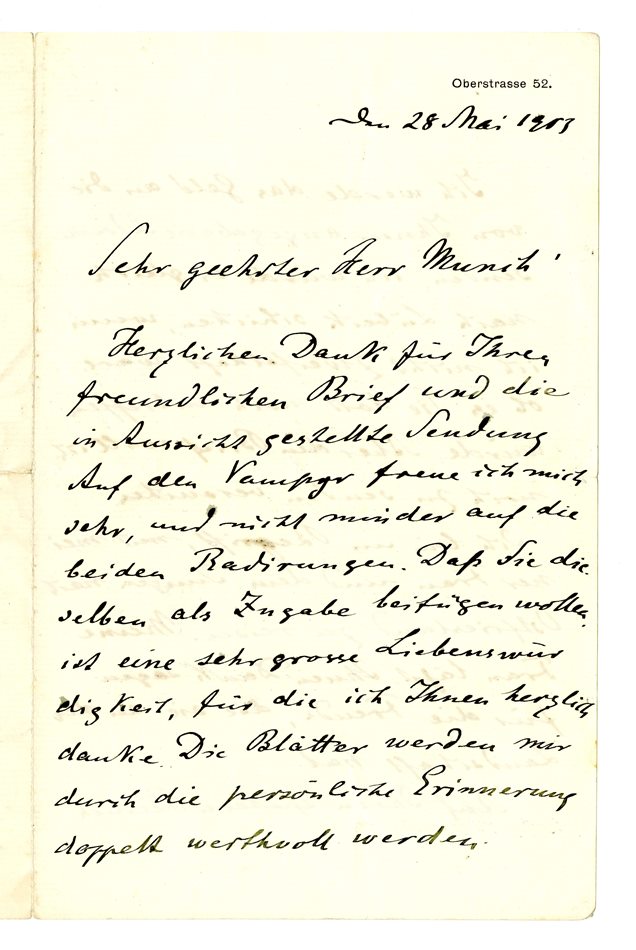 Oberstrasse 52.
Den 28 Mai 1903
Sehr geehrter Herr Munch!
Herzlichen Dank für Ihren
freundlichen Brief und die
in Aussicht gestellte Sendung
Auf den Vampyr freue ich mich
sehr, und nicht minder auf die
beiden Radirungen. Daß Sie die
selben als Zugabe beifügen wollen,
ist eine sehr grosse Liebenswür
digkeit, für die ich Ihnen herzlich
danke. Die Blätter werden mir
durch die persönliche Erinnerung
doppelt werthvoll werden.